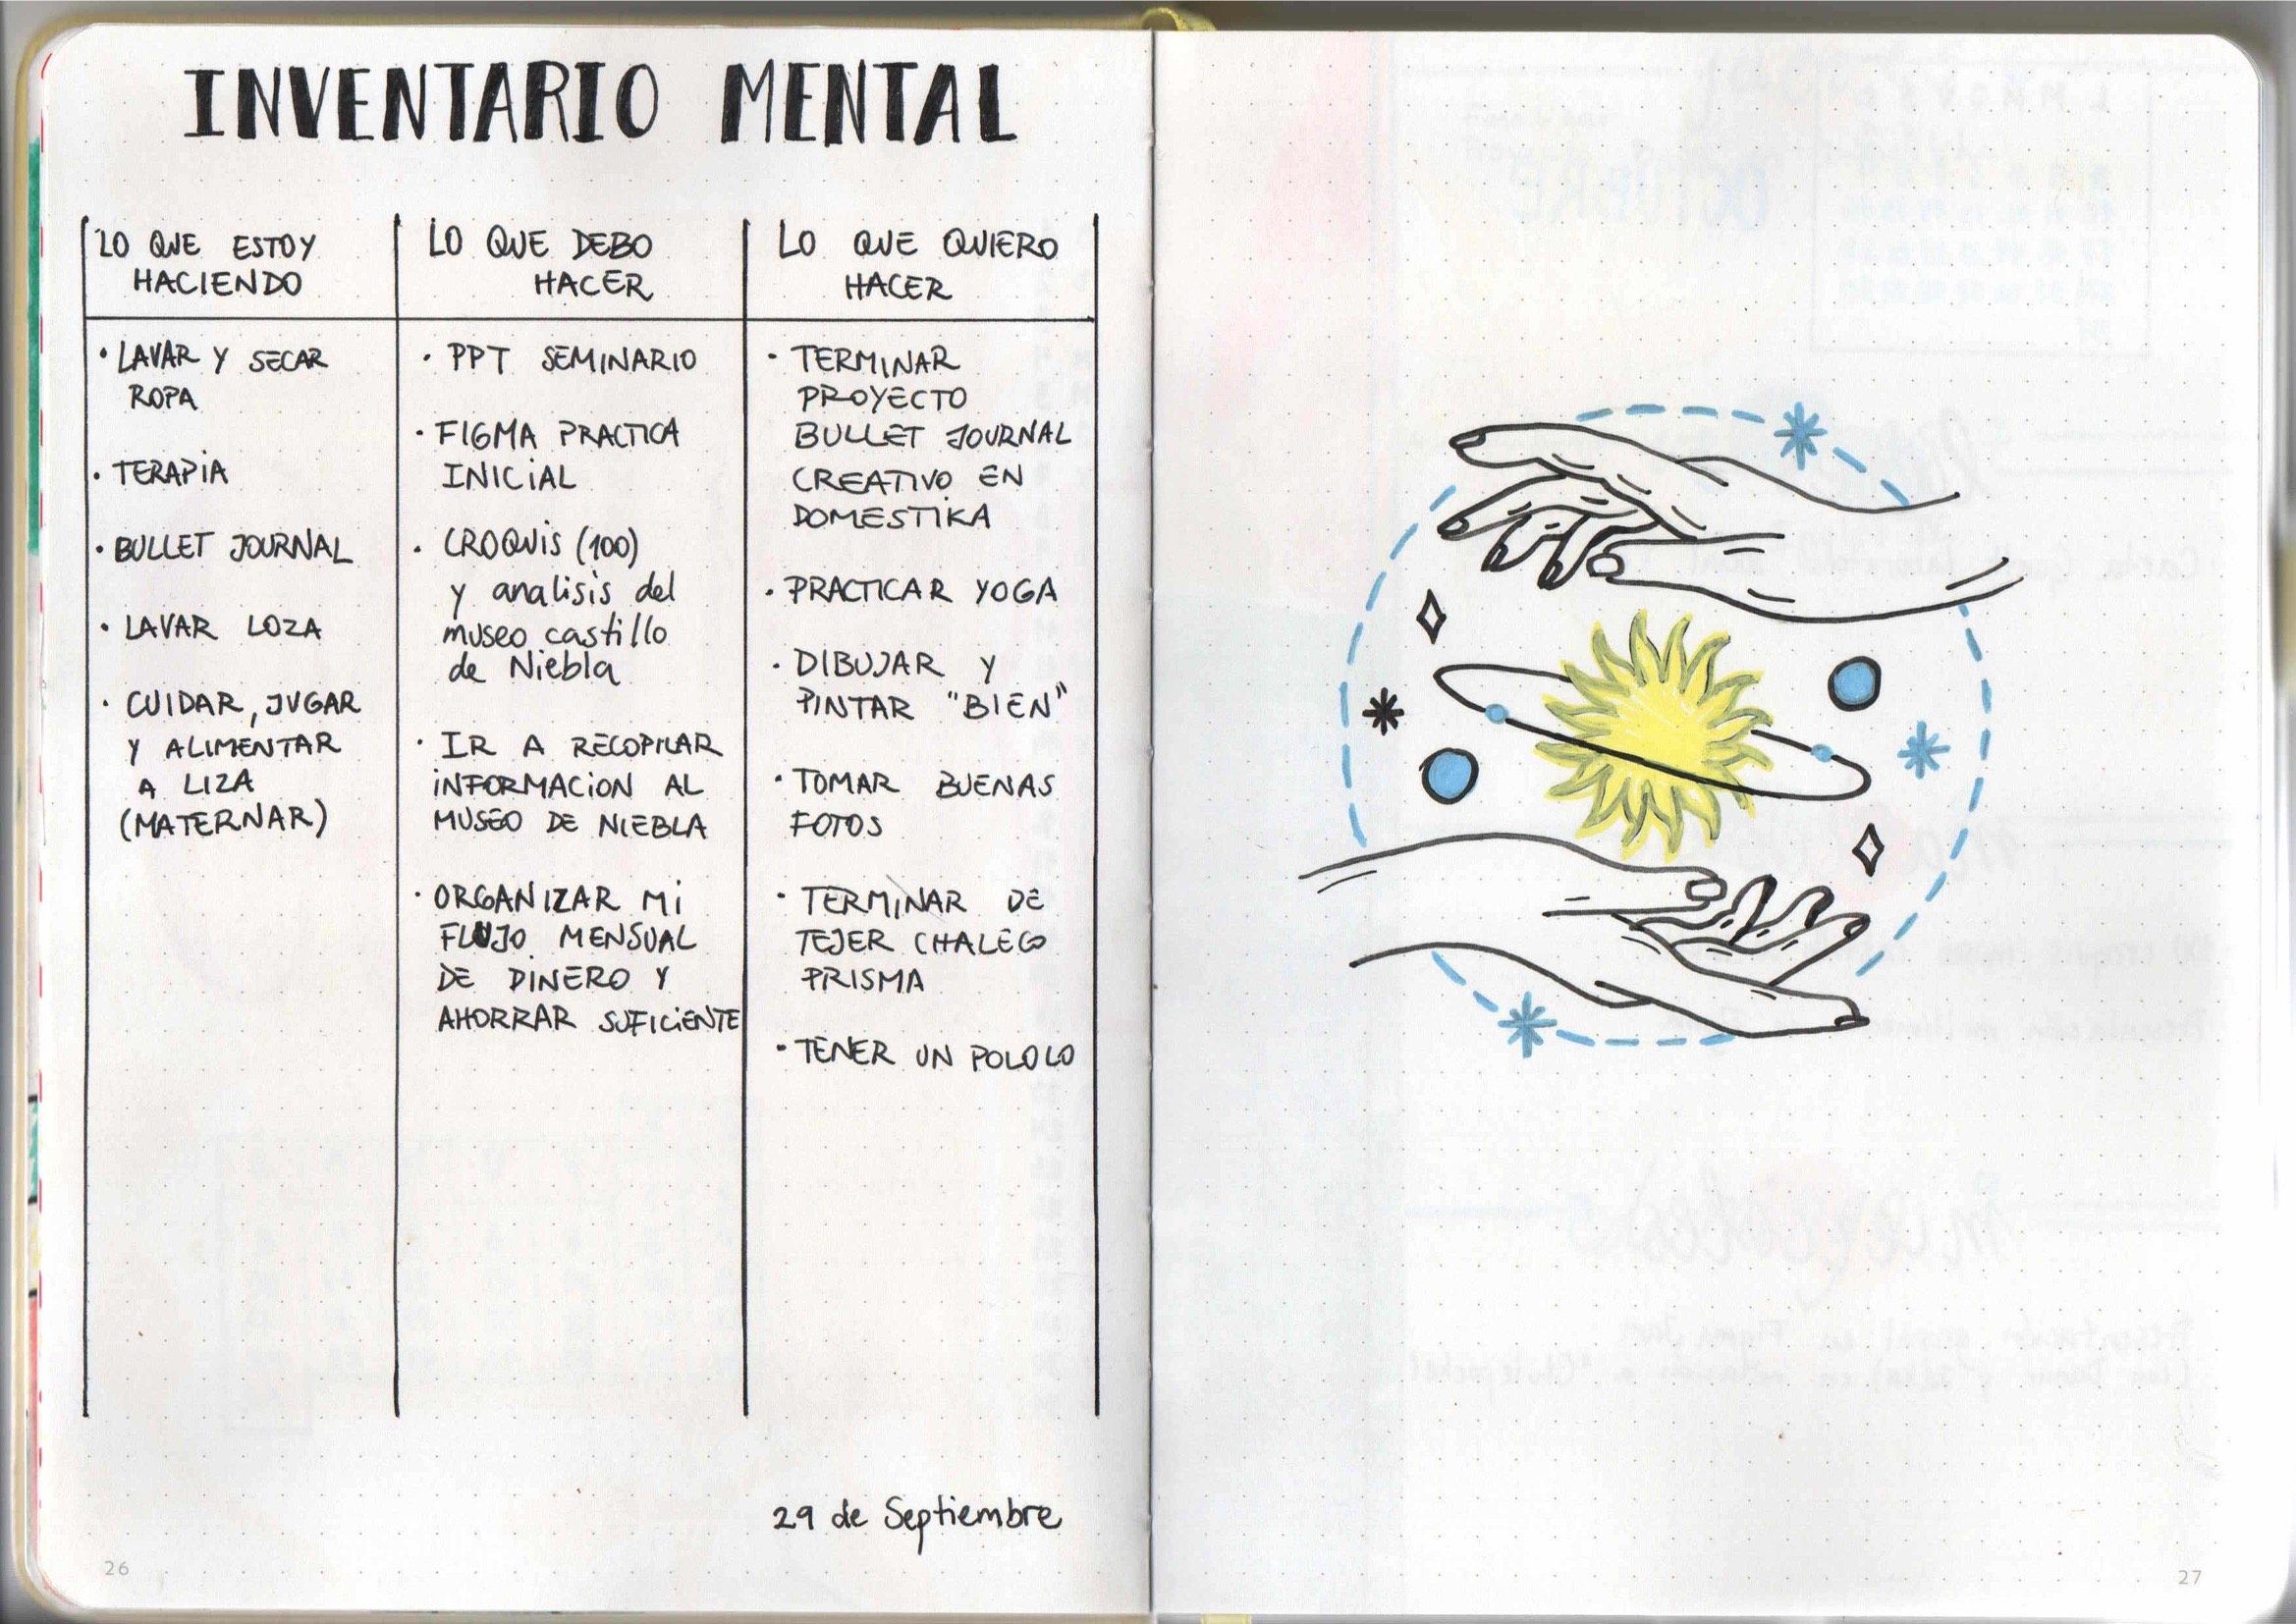 INVENTARIO MENTAL
LO QUE ESTOY
HACIENDO
· LAVAR Y SECAR
ROPA
· TERAPIA
· BULLET JOURNAL
· LAVAR LOZA
· CUIDAR, JUGAR
Y ALIMENTAR
A LIZA
(MATERNAR)
LO QUE DEBO
HACER
· PPT SEMINARIO
· FIGMA PRACTICA
INICIAL
· CROQUIS (100)
y analisis del
museo castillo
de Niebla
· IR A RECOPILAR
INFORMACION AL
MUSEO DE NIEBLA
· ORGANIZAR MI
FLUJO MENSUAL
DE DINERO Y
AHORRAR SUFICIENTE
LO QUE QUIERO
HACER
· TERMINAR
PROYECTO
BULLET JOURNAL
CREATIVO EN
DOMESTIKA
· PRACTICAR YOGA
· DIBUJAR Y
PINTAR "BIEN"
· TOMAR BUENAS
FOTOS
· TERMINAR DE
TEJER CHALECO
PRISMA
· TENER UN POLOLO
29 de Septiembre
26
27